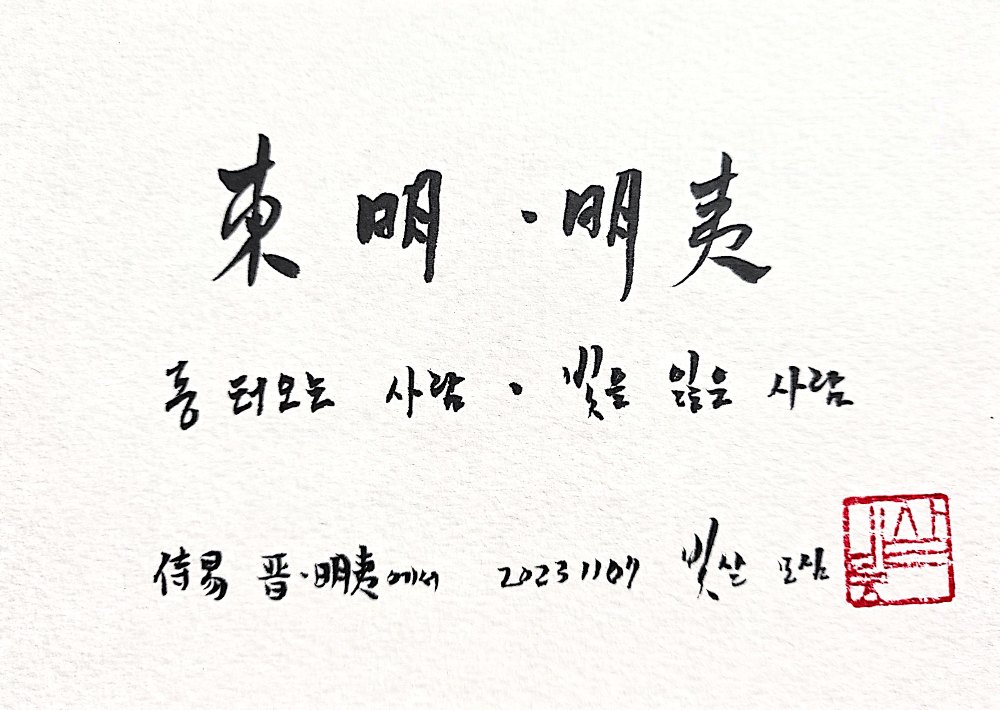 東明·明夷
동 터오는 사람 · 빛을 잃은 사람
侍易 晋·明夷에서 20231107 빛살 모심